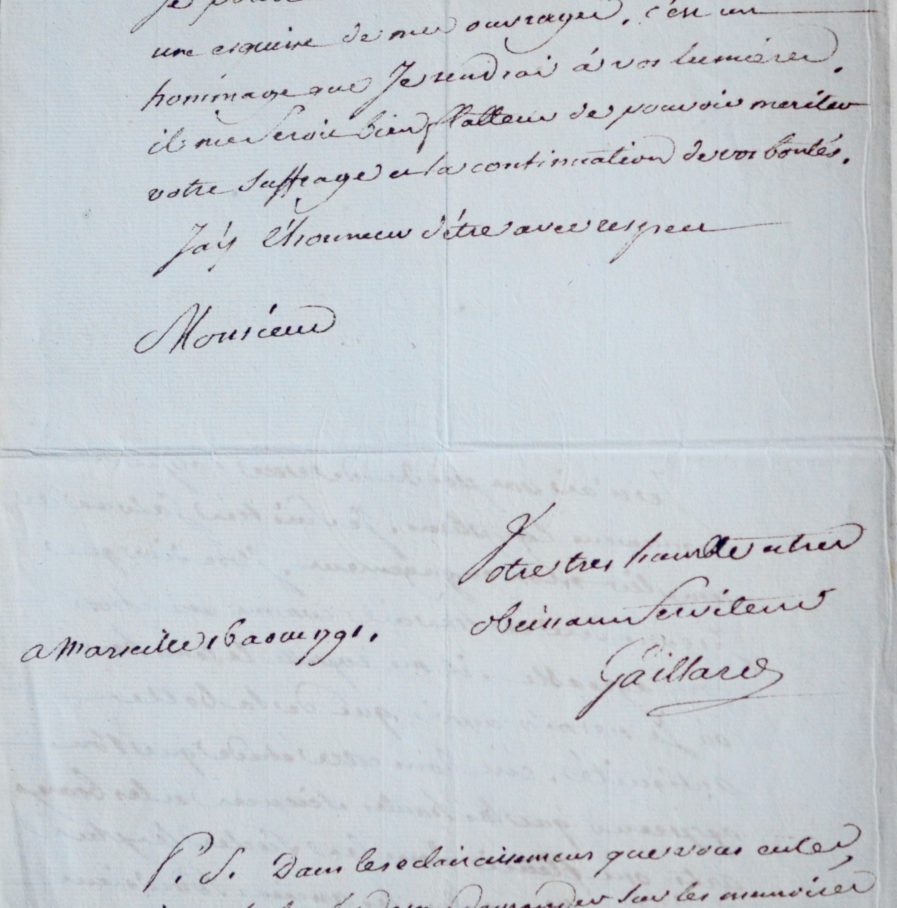 une esquisse de mes ouvrages. c'est un
hommage que Je rendrai á vos lumieres.
il me Seroit bien flatteur de pouvoir meriter
votre Suffrage et la continuation de vos bontés.
J'aÿ l'honneur d'être avec respect
Monsieur
Votre tres humble et tres
obeissant Serviteur
a Marseille 16 aout 1791.
Gaillard
P. S. Dans les eclaircissemens que vous eutes
demander sur les manieres